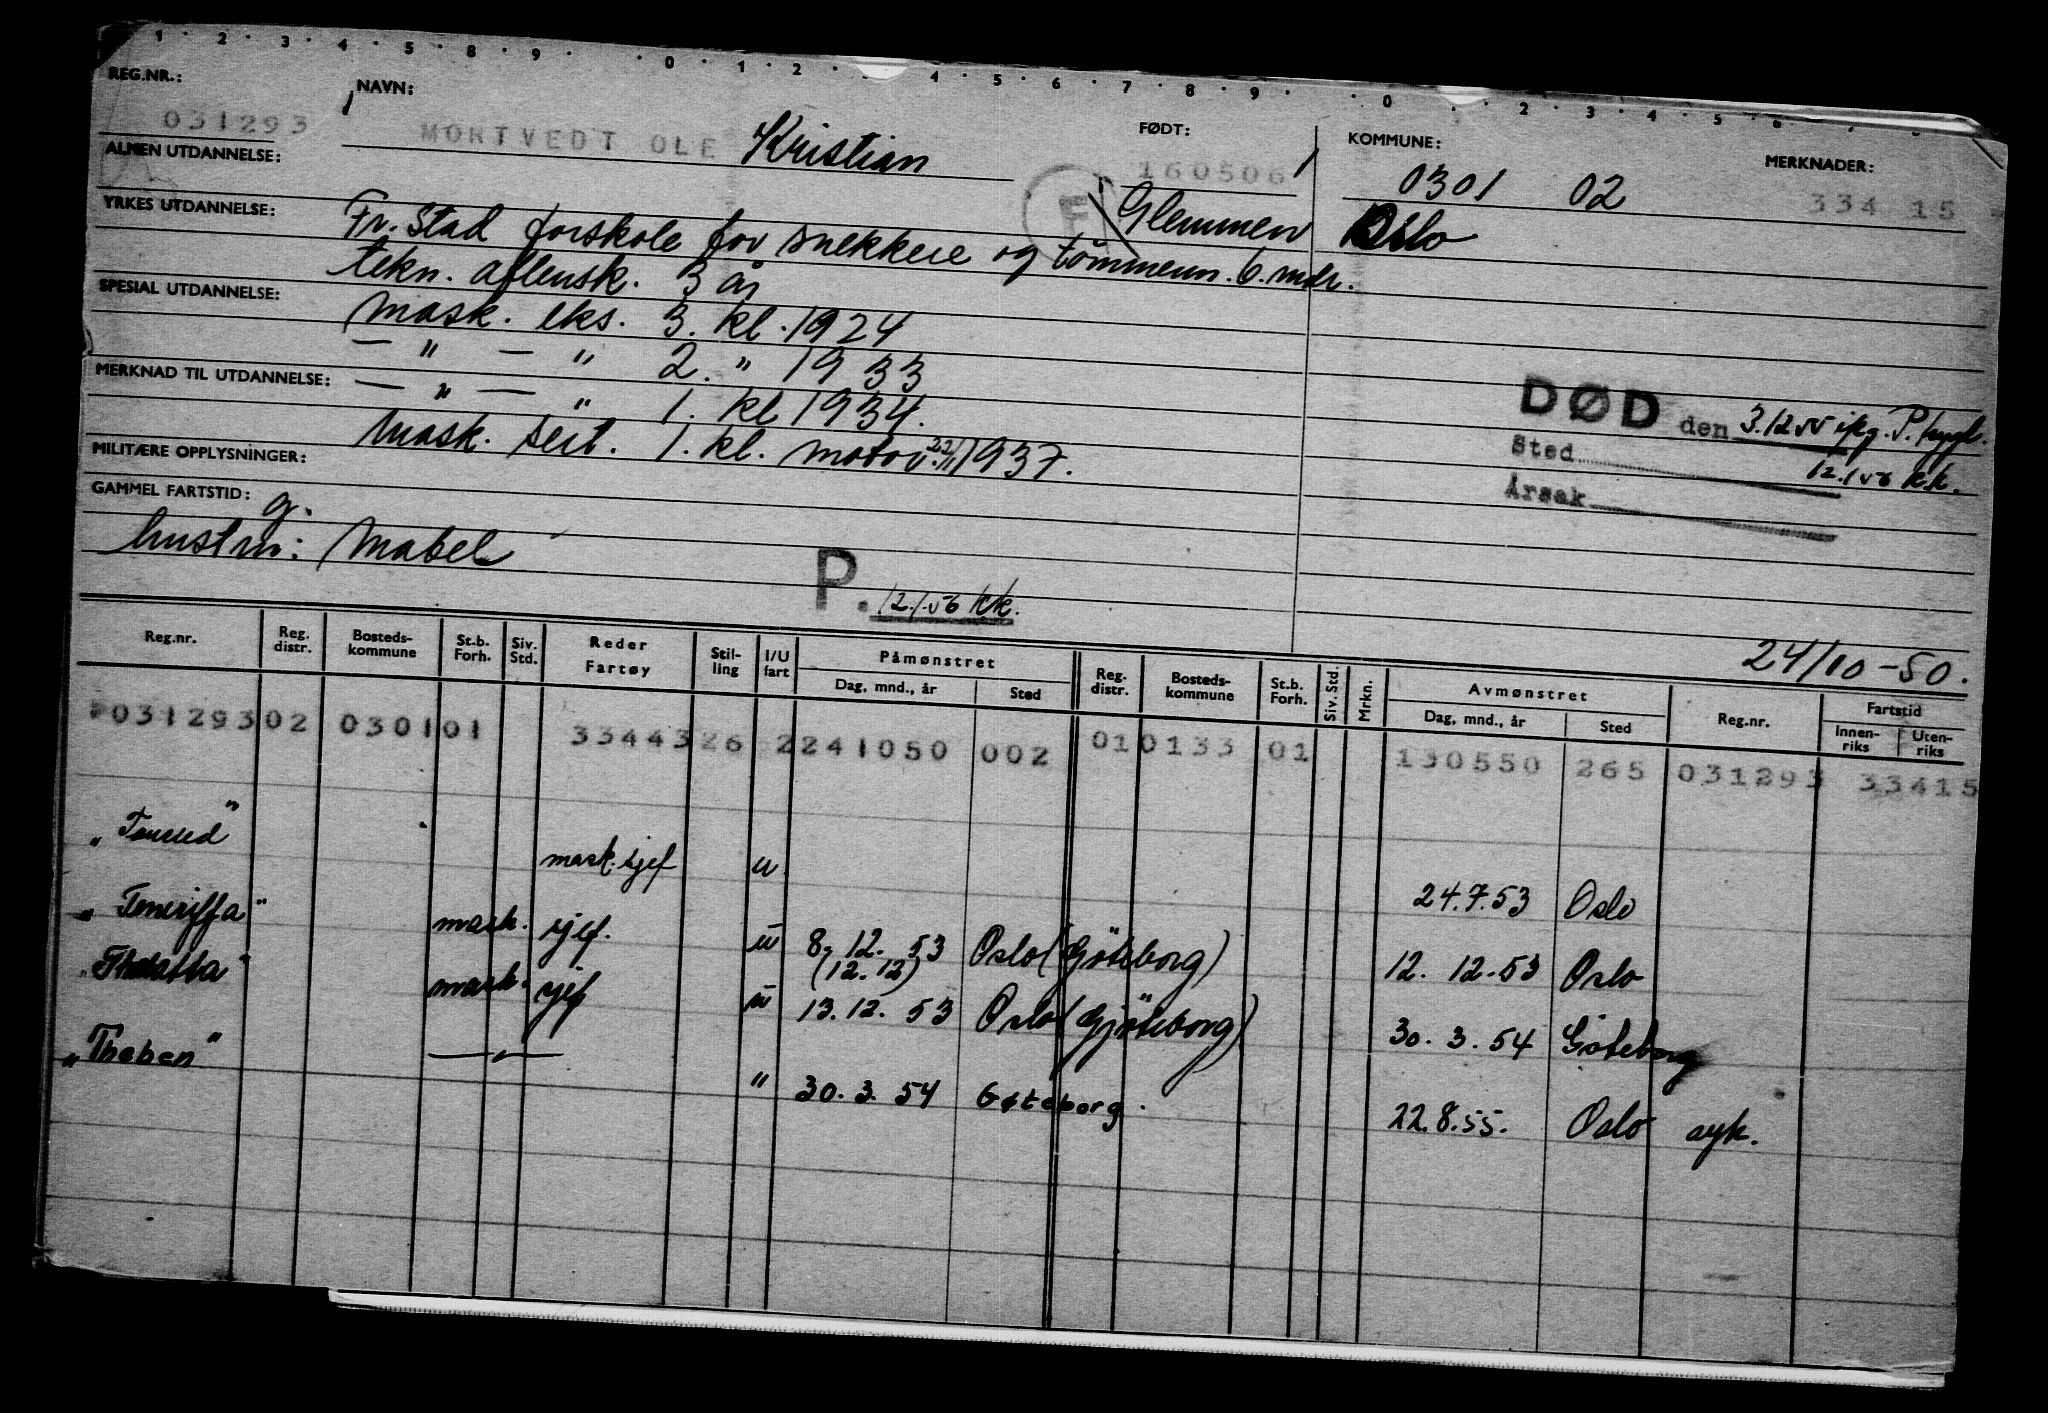 1 · 2 · 3 · 4 · 5 · 8 · 9 · · 0 · 1 · 2 · · 4 · 5 · 6 · 7 · 8 · 9 · · 0 · · 2 · 3 · 4 · 5 · 6
REG.NR.: NAVN: FØDT: KOMMUNE: MERKNADER:
031293 MORTVEDT OLE Kristian 160506 0301 02 334 15
ALMEN UTDANNELSE: Glemmen Oslo
YRKES UTDANNELSE: Fr. Stad forskole for snekkere og tømmerm. 6. mdr.
tekn. aftensk. 3 år
SPESIAL UTDANNELSE: Mask. eks. 3. kl. 1924
— " — " 2. " 1933
MERKNAD TIL UTDANNELSE: — " — " 1. kl 1934.
Mask. sert. 1. kl. motor 22/11 1937.
DØD den 3.12 55 ifg. P.
Sted 12.1.56 kk.
Årsak
MILITÆRE OPPLYSNINGER:
GAMMEL FARTSTID:
g.
hustru: Mabel
P. 12.1.56 kk.
24/10-50.
Reg.nr. Reg. distr. Bosteds-kommune St.b. Forh. Siv. Std. Reder Fartøy Stil-ling I/U fart Påmønstret Dag, mnd., år Sted Reg. distr. Bosteds-kommune St.b. Forh. Siv. Std. Mrkn. Avmønstret Dag, mnd., år Sted Reg.nr. Fartstid Innen-riks Uten-riks
031293 02 0301 01 33443 26 2 241050 002 01 0133 01 130550 265 031293 33415
" " mask. sjef u 24.7.53 Oslo
"Teneriffa" mask. sjef. u 8. 12. 53 (12.12) Oslo (Gøteborg) 12. 12. 53 Oslo
"Thalatta" mask. sjef u 13. 12. 53 Oslo (Gjøteborg) 30. 3. 54 Gøteborg
"Theben" — " — " 30. 3. 54 Gøteborg. 22.8.55. Oslo syk.